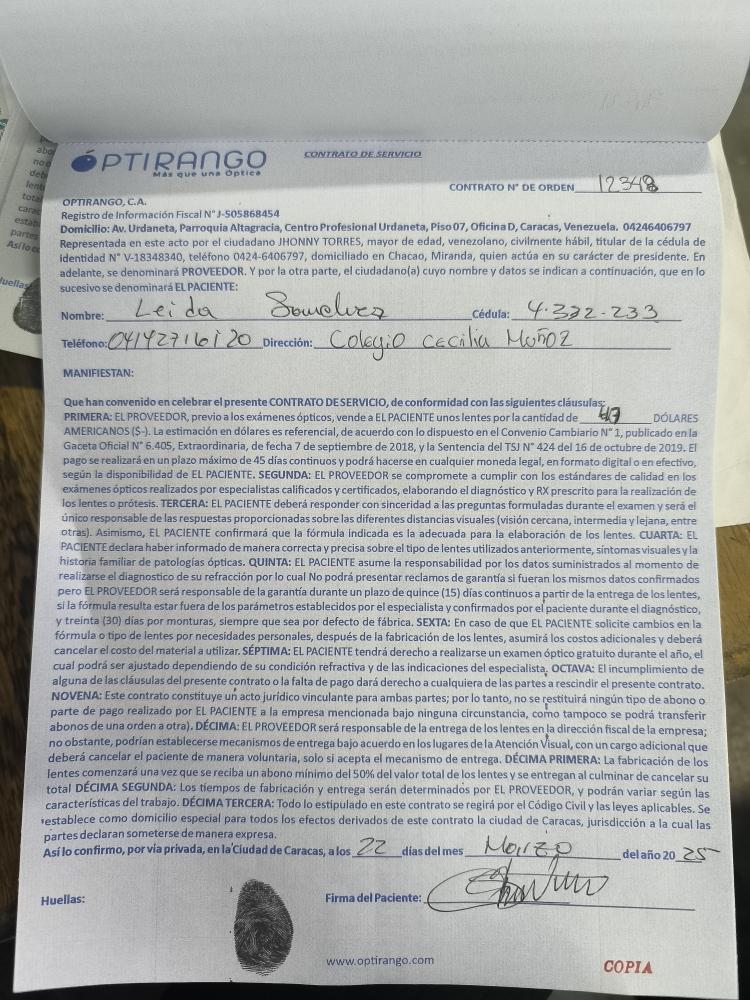 OPTIRANGO
Más que una Óptica
CONTRATO DE SERVICIO
CONTRATO N° DE ORDEN 12348
OPTIRANGO, C.A.
Registro de Información Fiscal N° J-505868454
Domicilio: Av. Urdaneta, Parroquia Altagracia, Centro Profesional Urdaneta, Piso 07, Oficina D, Caracas, Venezuela. 04246406797
Representada en este acto por el ciudadano JHONNY TORRES, mayor de edad, venezolano, civilmente hábil, titular de la cédula de
identidad N° V-18348340, teléfono 0424-6406797, domiciliado en Chacao, Miranda, quien actúa en su carácter de presidente. En
adelante, se denominará PROVEEDOR. Y por la otra parte, el ciudadano(a) cuyo nombre y datos se indican a continuación, que en lo
sucesivo se denominará EL PACIENTE:
Nombre: Leida Cédula: 4.332.233
Teléfono: 04142716120 Dirección: Colegio Cecilia Muñoz
MANIFIESTAN:
Que han convenido en celebrar el presente CONTRATO DE SERVICIO, de conformidad con las siguientes cláusulas:
PRIMERA: EL PROVEEDOR, previo a los exámenes ópticos, vende a EL PACIENTE unos lentes por la cantidad de DÓLARES
AMERICANOS ($-). La estimación en dólares es referencial, de acuerdo con lo dispuesto en el Convenio Cambiario N° 1, publicado en la
Gaceta Oficial N° 6.405, Extraordinaria, de fecha 7 de septiembre de 2018, y la Sentencia del TSJ N° 424 del 16 de octubre de 2019. El
pago se realizará en un plazo máximo de 45 días continuos y podrá hacerse en cualquier moneda legal, en formato digital o en efectivo,
según la disponibilidad de EL PACIENTE. SEGUNDA: EL PROVEEDOR se compromete a cumplir con los estándares de calidad en los
exámenes ópticos realizados por especialistas calificados y certificados, elaborando el diagnóstico y RX prescrito para la realización de
los lentes o prótesis. TERCERA: EL PACIENTE deberá responder con sinceridad a las preguntas formuladas durante el examen y será el
único responsable de las respuestas proporcionadas sobre las diferentes distancias visuales (visión cercana, intermedia y lejana, entre
otras). Asimismo, EL PACIENTE confirmará que la fórmula indicada es la adecuada para la elaboración de los lentes. CUARTA: EL
PACIENTE declara haber informado de manera correcta y precisa sobre el tipo de lentes utilizados anteriormente, síntomas visuales y la
historia familiar de patologías ópticas. QUINTA: EL PACIENTE asume la responsabilidad por los datos suministrados al momento de
realizarse el diagnostico de su refracción por lo cual No podrá presentar reclamos de garantía si fueran los mismos datos confirmados
pero EL PROVEEDOR será responsable de la garantía durante un plazo de quince (15) días continuos a partir de la entrega de los lentes,
si la fórmula resulta estar fuera de los parámetros establecidos por el especialista y confirmados por el paciente durante el diagnóstico,
y treinta (30) días por monturas, siempre que sea por defecto de fábrica. SEXTA: En caso de que EL PACIENTE solicite cambios en la
fórmula o tipo de lentes por necesidades personales, después de la fabricación de los lentes, asumirá los costos adicionales y deberá
cancelar el costo del material a utilizar. SÉPTIMA: EL PACIENTE tendrá derecho a realizarse un examen óptico gratuito durante el año, el
cual podrá ser ajustado dependiendo de su condición refractiva y de las indicaciones del especialista. OCTAVA: El incumplimiento de
alguna de las cláusulas del presente contrato o la falta de pago dará derecho a cualquiera de las partes a rescindir el presente contrato.
NOVENA: Este contrato constituye un acto jurídico vinculante para ambas partes; por lo tanto, no se restituirá ningún tipo de abono o
parte de pago realizado por EL PACIENTE a la empresa mencionada bajo ninguna circunstancia, como tampoco se podrá transferir
abonos de una orden a otra). DÉCIMA: EL PROVEEDOR será responsable de la entrega de los lentes en la dirección fiscal de la empresa;
no obstante, podrían establecerse mecanismos de entrega bajo acuerdo en los lugares de la Atención Visual, con un cargo adicional que
deberá cancelar el paciente de manera voluntaria, solo si acepta el mecanismo de entrega. DÉCIMA PRIMERA: La fabricación de los
lentes comenzará una vez que se reciba un abono mínimo del 50% del valor total de los lentes y se entregan al culminar de cancelar su
total DÉCIMA SEGUNDA: Los tiempos de fabricación y entrega serán determinados por EL PROVEEDOR, y podrán variar según las
características del trabajo. DÉCIMA TERCERA: Todo lo estipulado en este contrato se regirá por el Código Civil y las leyes aplicables. Se
establece como domicilio especial para todos los efectos derivados de este contrato la ciudad de Caracas, jurisdicción a la cual las
partes declaran someterse de manera expresa.
Así lo confirmo, por vía privada, en la Ciudad de Caracas, a los 22 días del mes Marzo del año 20 25
Huellas:
Firma del Paciente:
www.optirango.com
COPIA